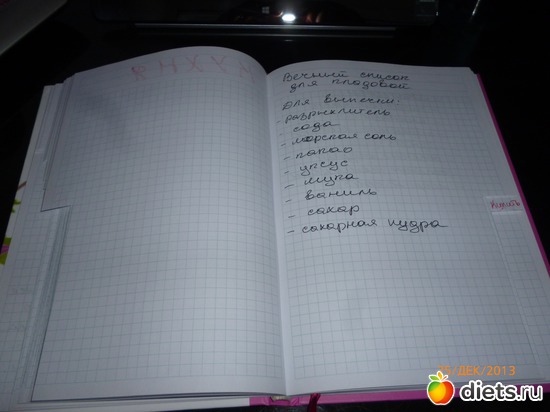 Вечный список
для кладовой
Для выпечки:
- разрыхлитель
- сода
- морская соль
- какао
- уксус
- мука
- ваниль
- сахар
- сахарная пудра
/ДЕК/2013
diets.ru